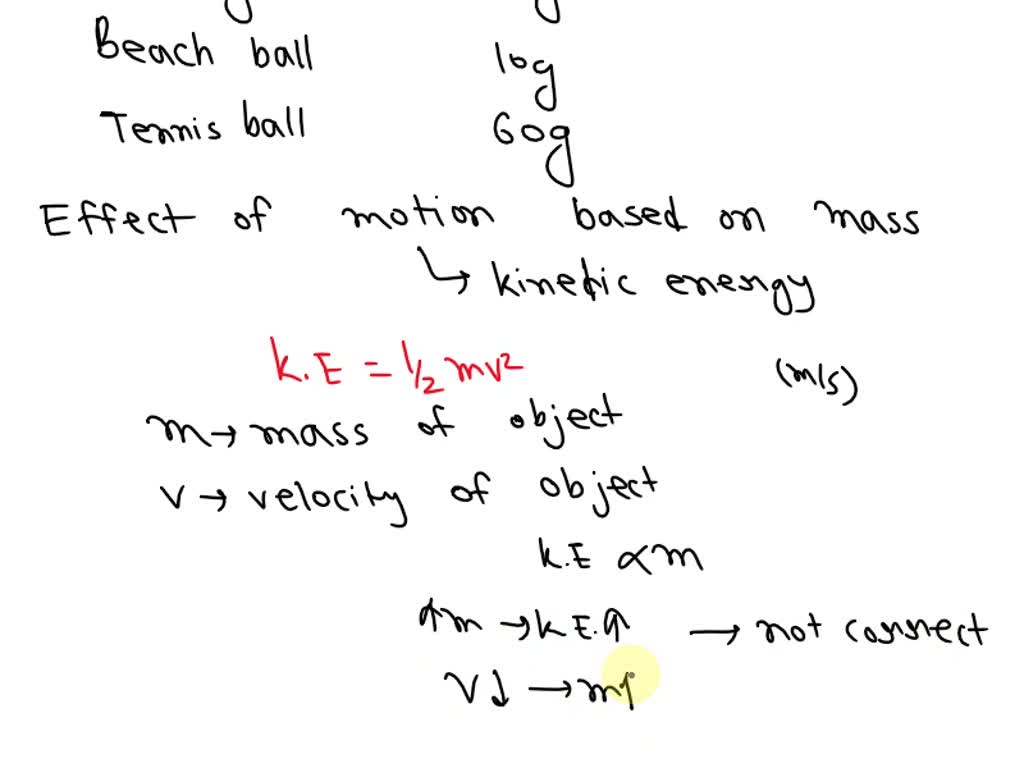 Beach ball 10g
Tennis ball 60g
Effect of motion based on mass
↳ kinetic energy
K.E = 1/2 mv²
(m/s)
m → mass of object
v → velocity of object
K.E ∝ m
↑m → K E.↑ → not correct
V↓ → m↑